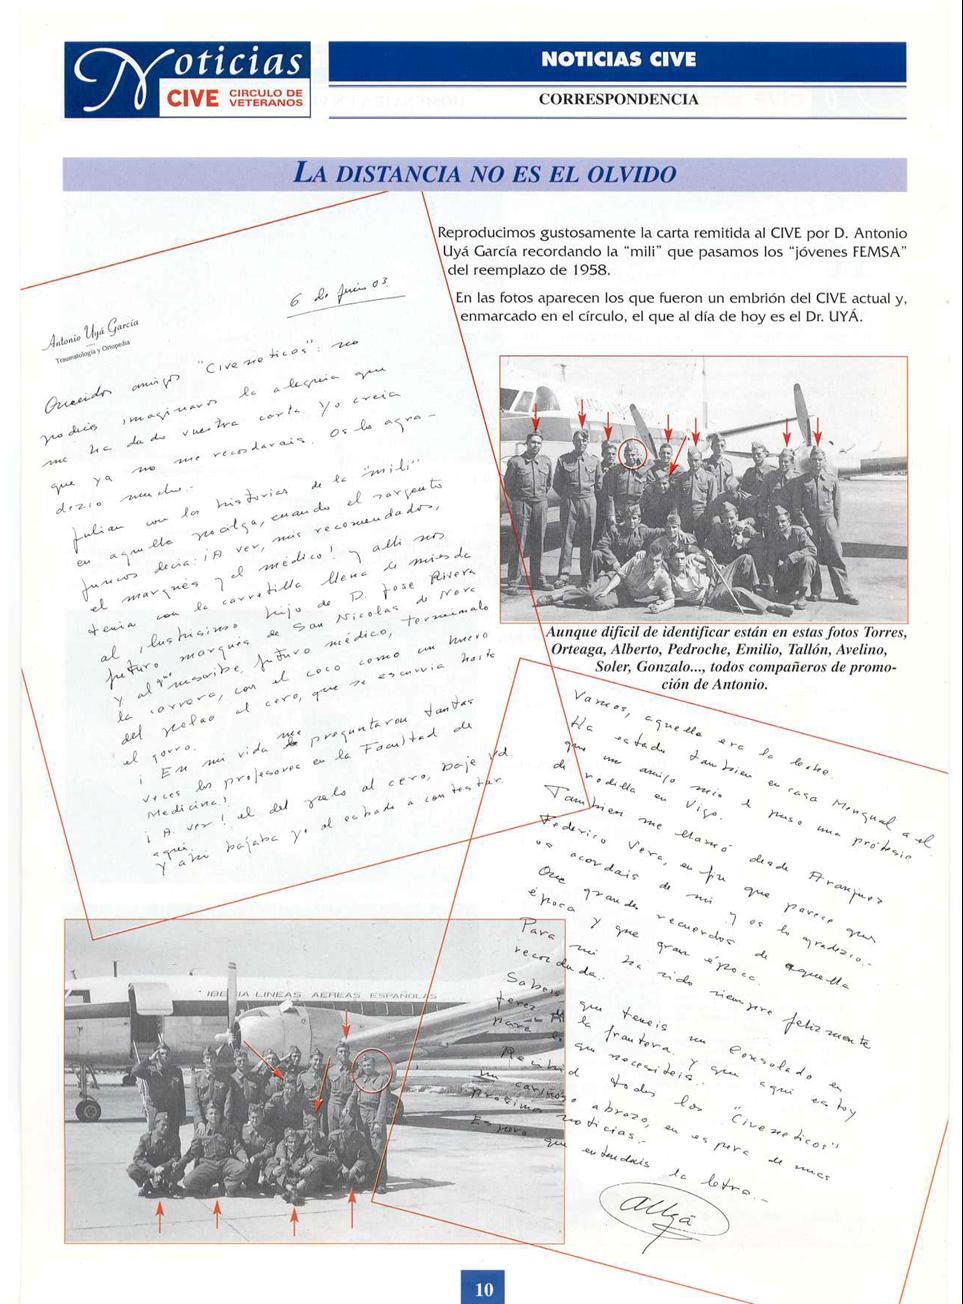 Noticias
CIVE CIRCULO DE
VETERANOS
NOTICIAS CIVE
CORRESPONDENCIA
LA DISTANCIA NO ES EL OLVIDO
Reproducimos gustosamente la carta remitida al CIVE por D. Antonio
Uyá García recordando la “mili” que pasamos los “jóvenes FEMSA”
del reemplazo de 1958.
En las fotos aparecen los que fueron un embrión del CIVE actual y,
enmarcado en el círculo, el que al día de hoy es el Dr. UYÁ.
6 de Junio 03
Antonio Uyá García
Traumatología y Ortopedia
Queridos amigos "Civeneticos": no
podeis imaginaros la alegria que
me ha dado vuestra carta. Yo creia
que ya no me recordarais. Os lo agra-
dezco mucho.-
Julian con las historias de la "mili"
en aquella epoca, cuando el sargento
Juncos decia: ¡A ver, mis recomendados,
el marqués y el médico! y alli nos
tenia con la carretilla llena de mierda
al ilustrisimo hijo de D. Jose Rivera
futuro marques de San Nicolas de Nora
y al que suscribe, futuro médico, terminada
la carrera, con el coco como un huevo
del pelao al cero, que se escurria hasta
el gorro.
¡En mi vida me preguntaron tantas
veces los profesores en la Facultad de
Medicina!
¡A ver! el del pelo al cero, baje Vd.
aqui.
Y ahi bajaba yo al estrado a contestar.
Aunque dificil de identificar están en estas fotos Torres,
Orteaga, Alberto, Pedroche, Emilio, Tallón, Avelino,
Soler, Gonzalo..., todos compañeros de promo-
ción de Antonio.
Vamos, aquello era la leche.
Ha estado tambien en casa Mengual a el
que un amigo mio le puso una prótesis
de rodilla en Vigo.
Tambien me llamó desde Aranjuez
Federico Vera, en fin que parece que
os acordais de mi y os lo agradezco.-
Que grandes recuerdos de aquella
época y que gran época.
Para mi ha sido siempre felizmente
recordada.
Sabeis que teneis un Consulado en
la frontera y que aqui estoy
para lo que necesiteis.
Recibid todos los "Civeneticos"
un cariñoso abrazo, en espera de mas
proximas noticias.-
Espero que entendais la letra.-
AUyá
IBERIA LINEAS AEREAS ESPAÑOLAS
10